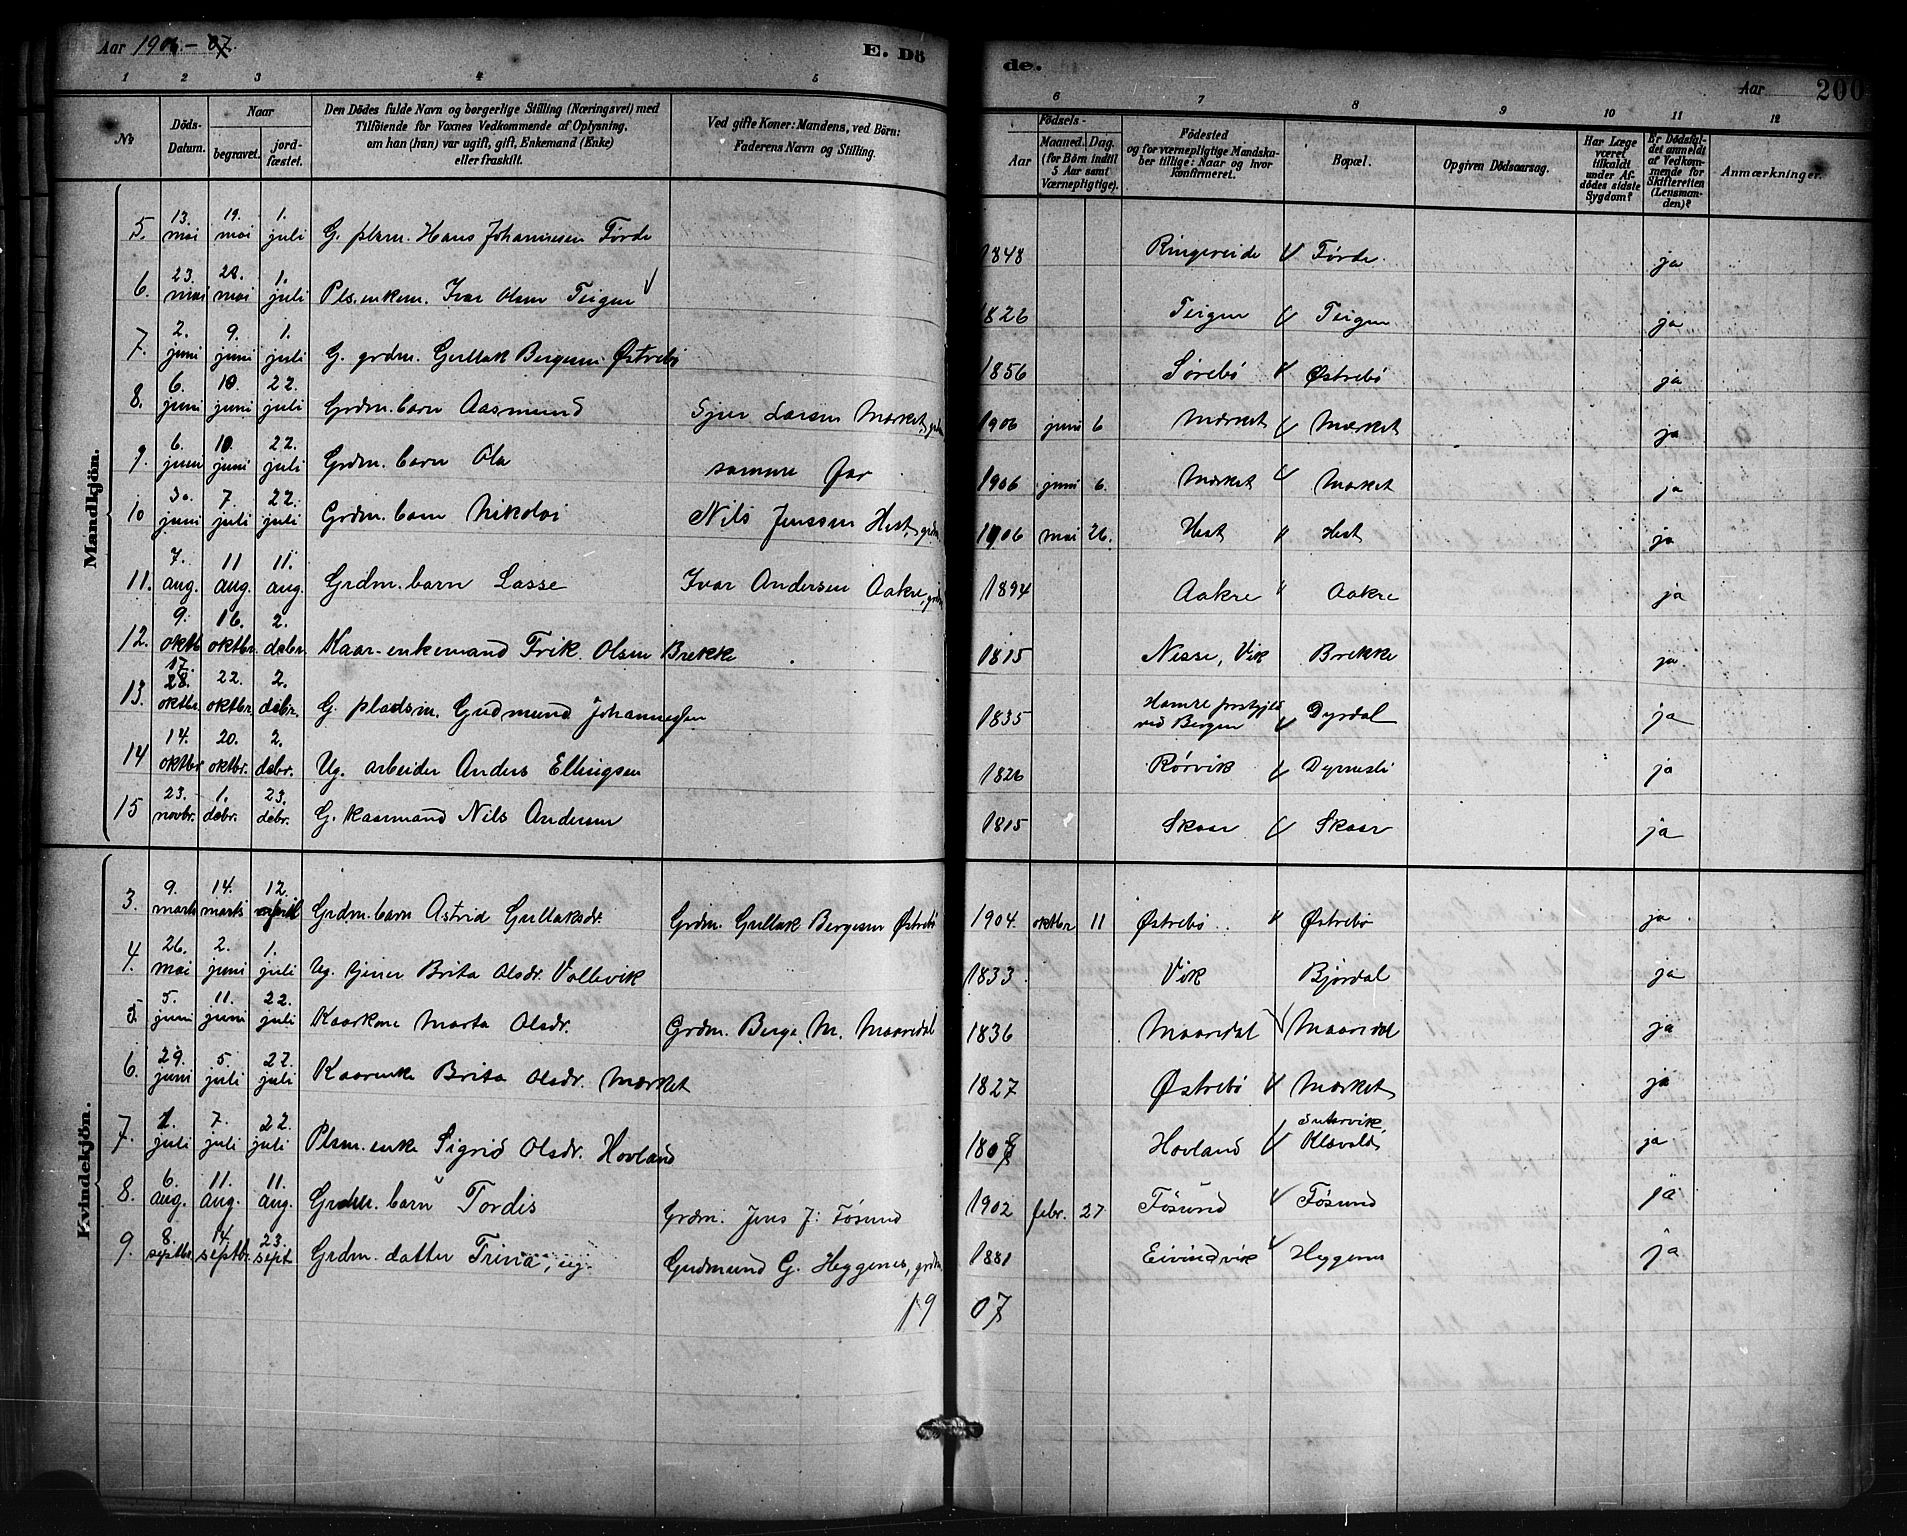 Aar 1906-07.
E. Dö
de.
Aar 200
1 2 3 4 5 6 7 8 9 10 11 12
No
Döds-Datum.
Naar
begravet.
jord-fæstet.
Den Dödes fulde Navn og borgerlige Stilling (Næringsvei) med
Tilföiende for Voxnes Vedkommende af Oplysning,
om han (hun) var ugift, gift, Enkemand (Enke)
eller fraskilt.
Ved gifte Koner: Mandens, ved Börn:
Faderens Navn og Stilling.
Födsels-
Aar
Maaned. Dag.
(for Börn indtil
5 Aar samt
Værnepligtige).
Födested
og for værnepligtige Mandska-
ber tillige: Naar og hvor
konfirmeret.
Bopæl.
Opgiven Dödsaarsag.
Har Læge
været
tilkaldt
under Af-
dödes sidste
Sygdom?
Er Dödsfal-
det anmeldt
af Vedkom-
mende for
Skifteretten
(Lensman-
den)?
Anmærkninger.
Mandkjön.
5. 13. mai 19. mai 1. juli G. plsm. Hans Johannesen Førde 1848 Ringereide Førde. ja
6. 23. mai 28. mai 1. juli Pls.enkem. Ivar Olsen Teigen 1826 Teigen Teigen ja
7. 2. juni 9. juni 1. juli G. grdm. Gullak Bergesen Østrebø 1856 Sørebø Østrebø ja
8. 6. juni 10. juni 22. juli Grdm. barn Aasmund Sjur Larsen Mærket, grdm 1906 juni 6 Mærket Mærket ja
9. 6. juni 10. juni 22. juli Grdm. barn Ola samme far 1906 juni 6. Mærket Mærket ja
10 30 juni 7. juli 22. juli Grdm. barn Nikolai Nils Jenssen Hest, grdm. 1906 mai 26. Hest " Hest ja
11. 7. aug. 11 aug. 11. aug. Grdm. barn Lasse Ivar Andersen Aakre, grdm 1894 Aakre " Aakre ja
12. 9. oktb 16. oktbr. 2. debr. Kaar-enkemand Erik Olsen Brekke 1815 Nesse, Vik Brekke ja
13. 17. oktbr. 22. oktbr. 2. debr. G. pladsm. Gudmund Johannessen 1835 Hamre prstgjeld ved Bergen Dyrdal ja
14 14. oktbr 20. oktbr. 2. debr. Ug. arbeider Anders Ellingsen 1826 Rørvik Dyrnesli ja
15 23. novbr. 1. debr. 23. debr. G. kaarmand Nils Andersen 1815 Skaar Skaar ja
Kvindekjön.
3. 9. marts 14. marts 12. april Grdm. barn Astrid Gullaksdr. Grdm. Gullak Bergesen Østrebø 1904. oktbr 11 Østrebø " Østrebø ja
4. 26. mai 2. juni 1. juli Ug. tjener Brita Olsdr. Vollevik 1833 Vik Bjørdal ja
5. 5. juni 11. juni 22. juli Kaarkone Marta Olsdr. Grdm. Berge M. Maaredal 1836 Maaredal Maaredal ja
6. 29. juni 5. juli 22. juli Kaarenke Brita Olsdr. Mærket 1827 Østrebø Mærket ja
7. 1. juli 7. juli 22. juli Plsm. enke Sigrid Olsdr. Hovland 1808 Hovland ja
8. 6. aug. 11. aug. 11. aug. Grdm. barn Tordis Grdm. Jens J. Føsund 1902 febr. 27 Føsund Føsund ja
9. 8. septbr. 14. septbr. 23. sept. Grdm. datter Trina, ug. Gudmund G. Heggenes, grdm. 1881 Eivindvik Heggenes ja
1907